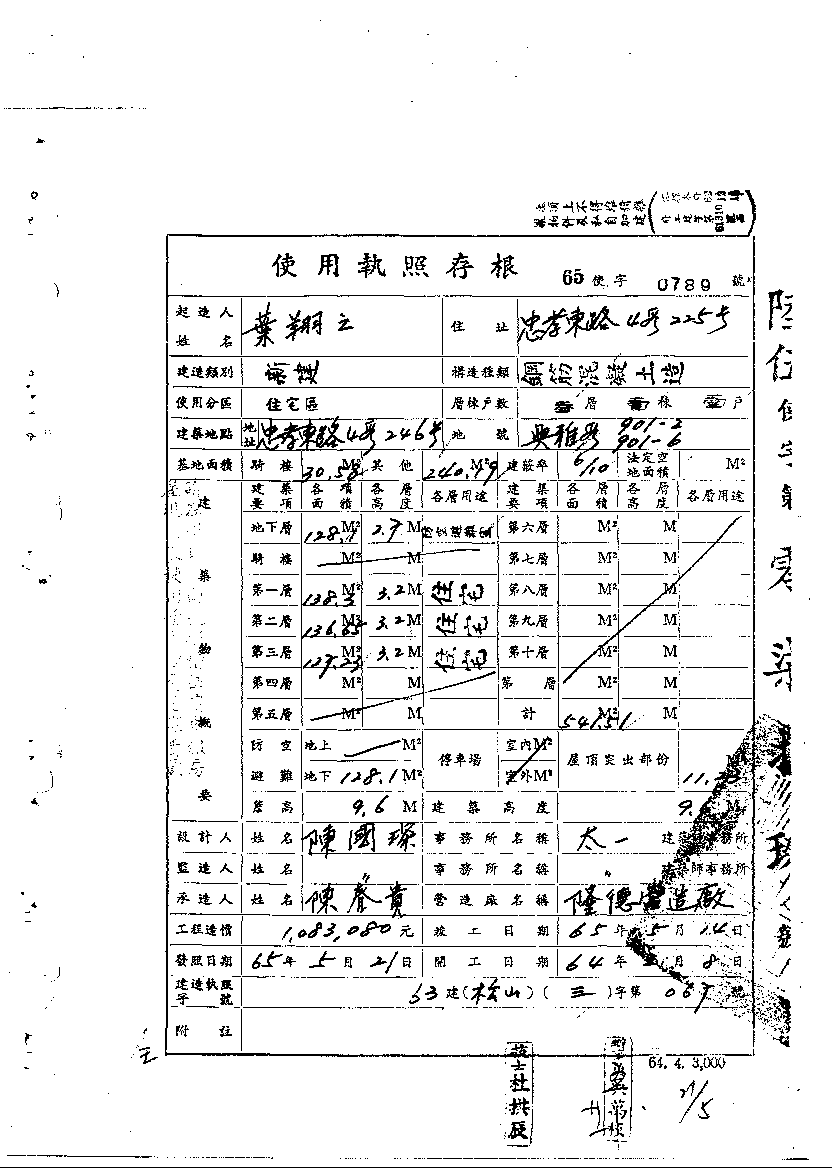 使用執照存根
65 使字 0789 號
起造人姓名 葉翔之 住址 忠孝東路4段225号
建造類別 新建 構造種類 鋼筋混凝土造
使用分區 住宅區 層棟戶數 層 棟 戶
建築地點 地址 忠孝東路4段246号 地號 興雅段 901-2 901-6
基地面積 騎樓 30.58 M² 其他 240.79 M² 建蔽率 6/10 法定空地面積 M²
建築物概要 建築要項 各項面積 各層高度 各層用途 建築要項 各層面積 各層高度 各層用途
地下層 128.1 M² 2.7 M 第六層 M² M
騎樓 M² M 第七層 M² M
第一層 138.3 M² 3.2 M 住宅 第八層 M² M
第二層 136.65 M² 3.2 M 住宅 第九層 M² M
第三層 127.23 M² 3.2 M 住宅 第十層 M² M
第四層 M² M 第 層 M² M
第五層 M² M 計 541.51 M² M
防空避難 地上 M² 停車場 室內M² 屋頂突出部份
地下 128.1 M² 室外M² 11.23
簷高 9.6 M 建築高度 9.6 M
設計人 姓名 陳國琛 事務所名稱 太一 建築師事務所
監造人 姓名 〃 事務所名稱 〃 建築師事務所
承造人 姓名 陳春貴 營造廠名稱 隆德營造廠
工程造價 1,083,080 元 竣工日期 65年5月14日
發照日期 65年5月21日 開工日期 64年 月8日
建造執照字號 63建(松山)(三)字第067號
附註
64. 4. 3,000
技士杜拱辰
21/5